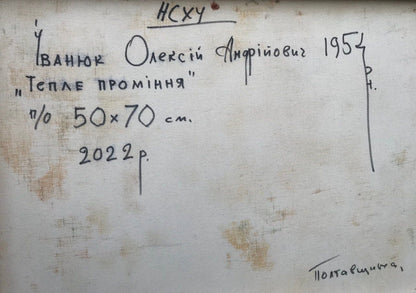 НСХУ
Іванюк Олексій Андрійович 1954 р.н.
"Тепле проміння"
п/о 50×70 см.
2022 р.
Полтавщина,